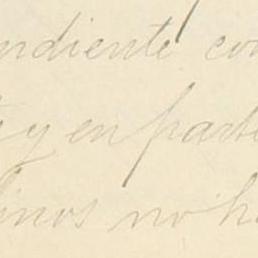 ndiente con
y en parte
linos no h